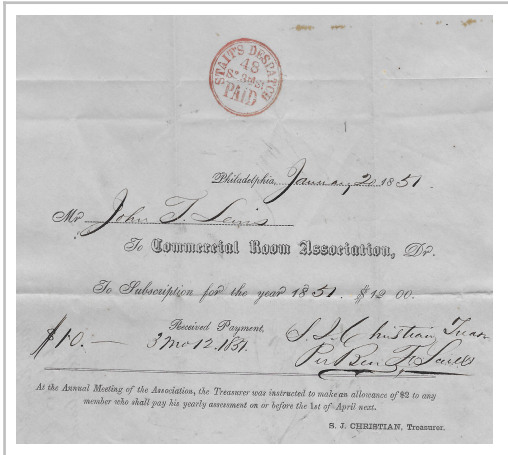 STAIT'S DESPATCH
48
So. 3rd St
PAID
Philadelphia, January 2 1851.
Mr John T. Lewis
To Commercial Room Association, Dr.
To Subscription for the year 1851. $12 00.
Received Payment,
$10.— 3 Mo 12. 1851. S. J. Christian Treasr
Per Ben
At the Annual Meeting of the Association, the Treasurer was instructed to make an allowance of $2 to any
member who shall pay his yearly assessment on or before the 1st of April next.
S. J. CHRISTIAN, Treasurer.